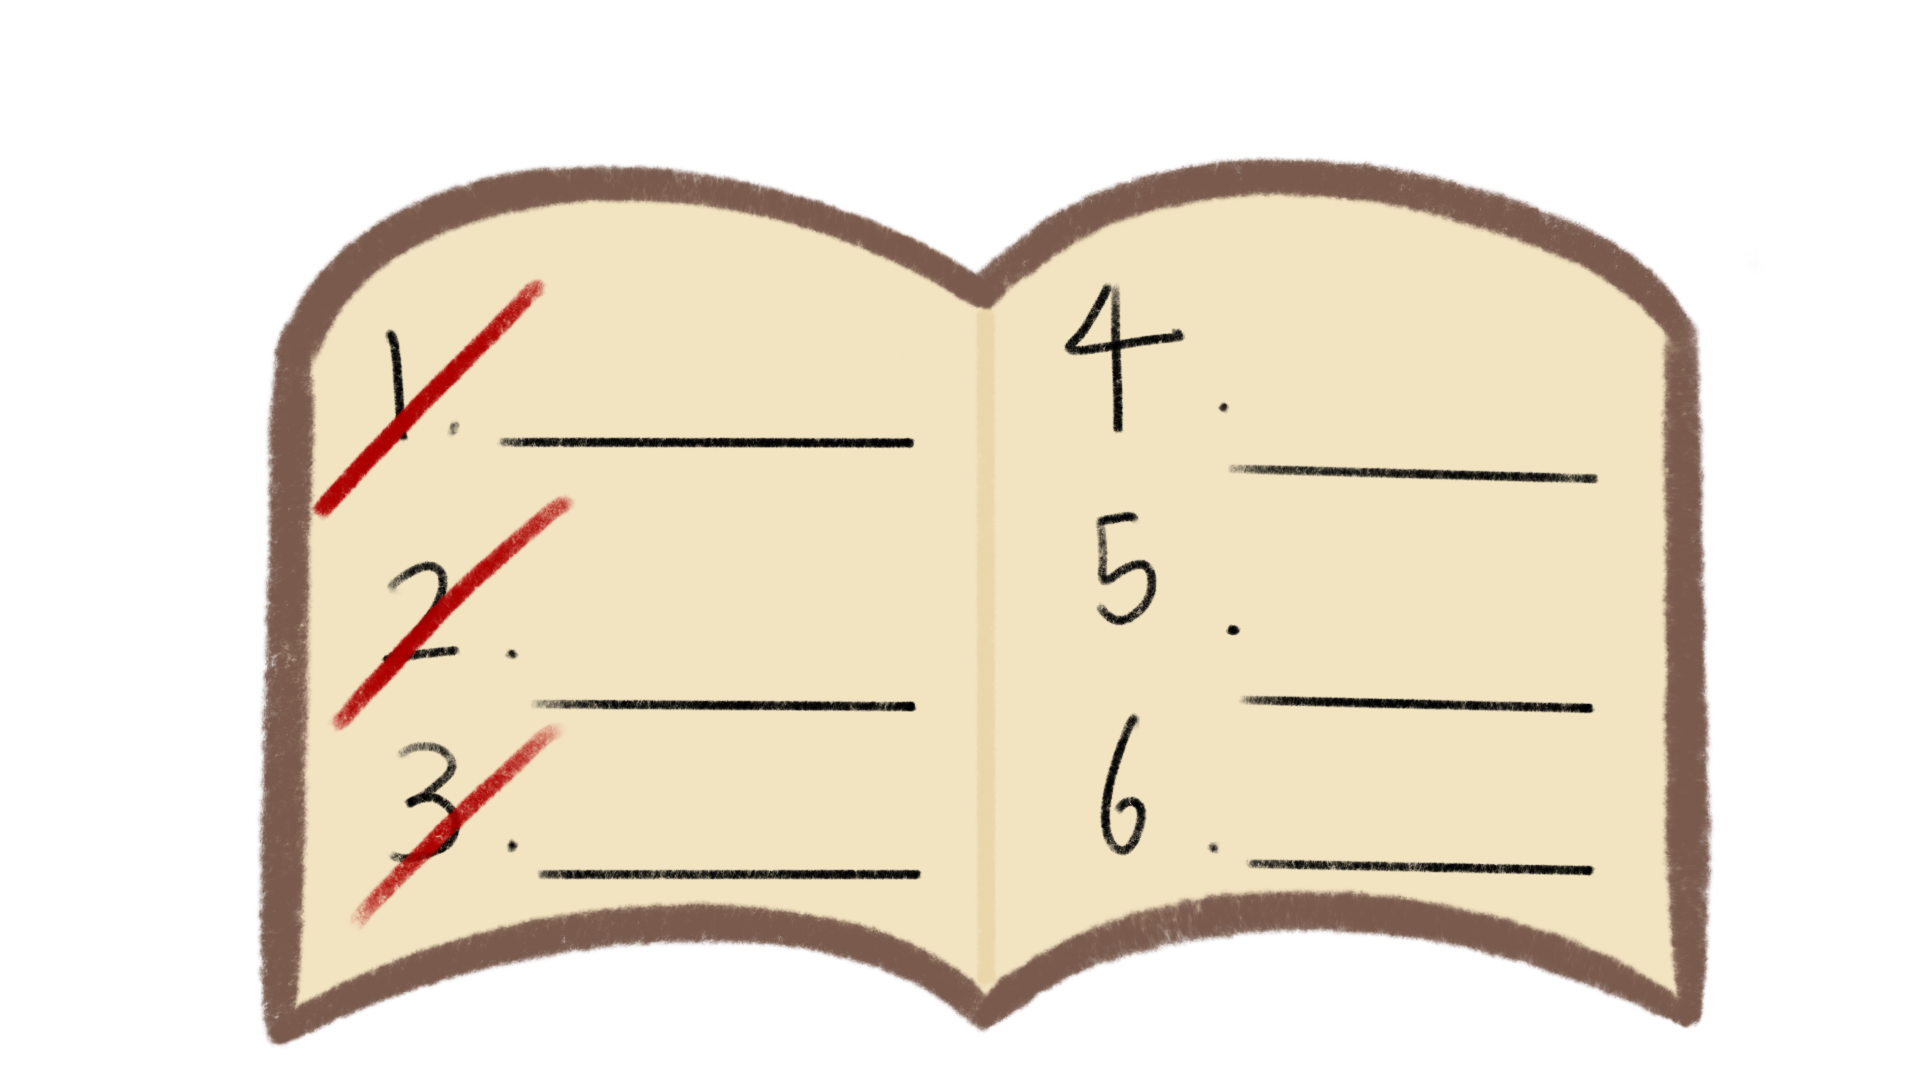 1.
2.
3.
4.
5.
6.